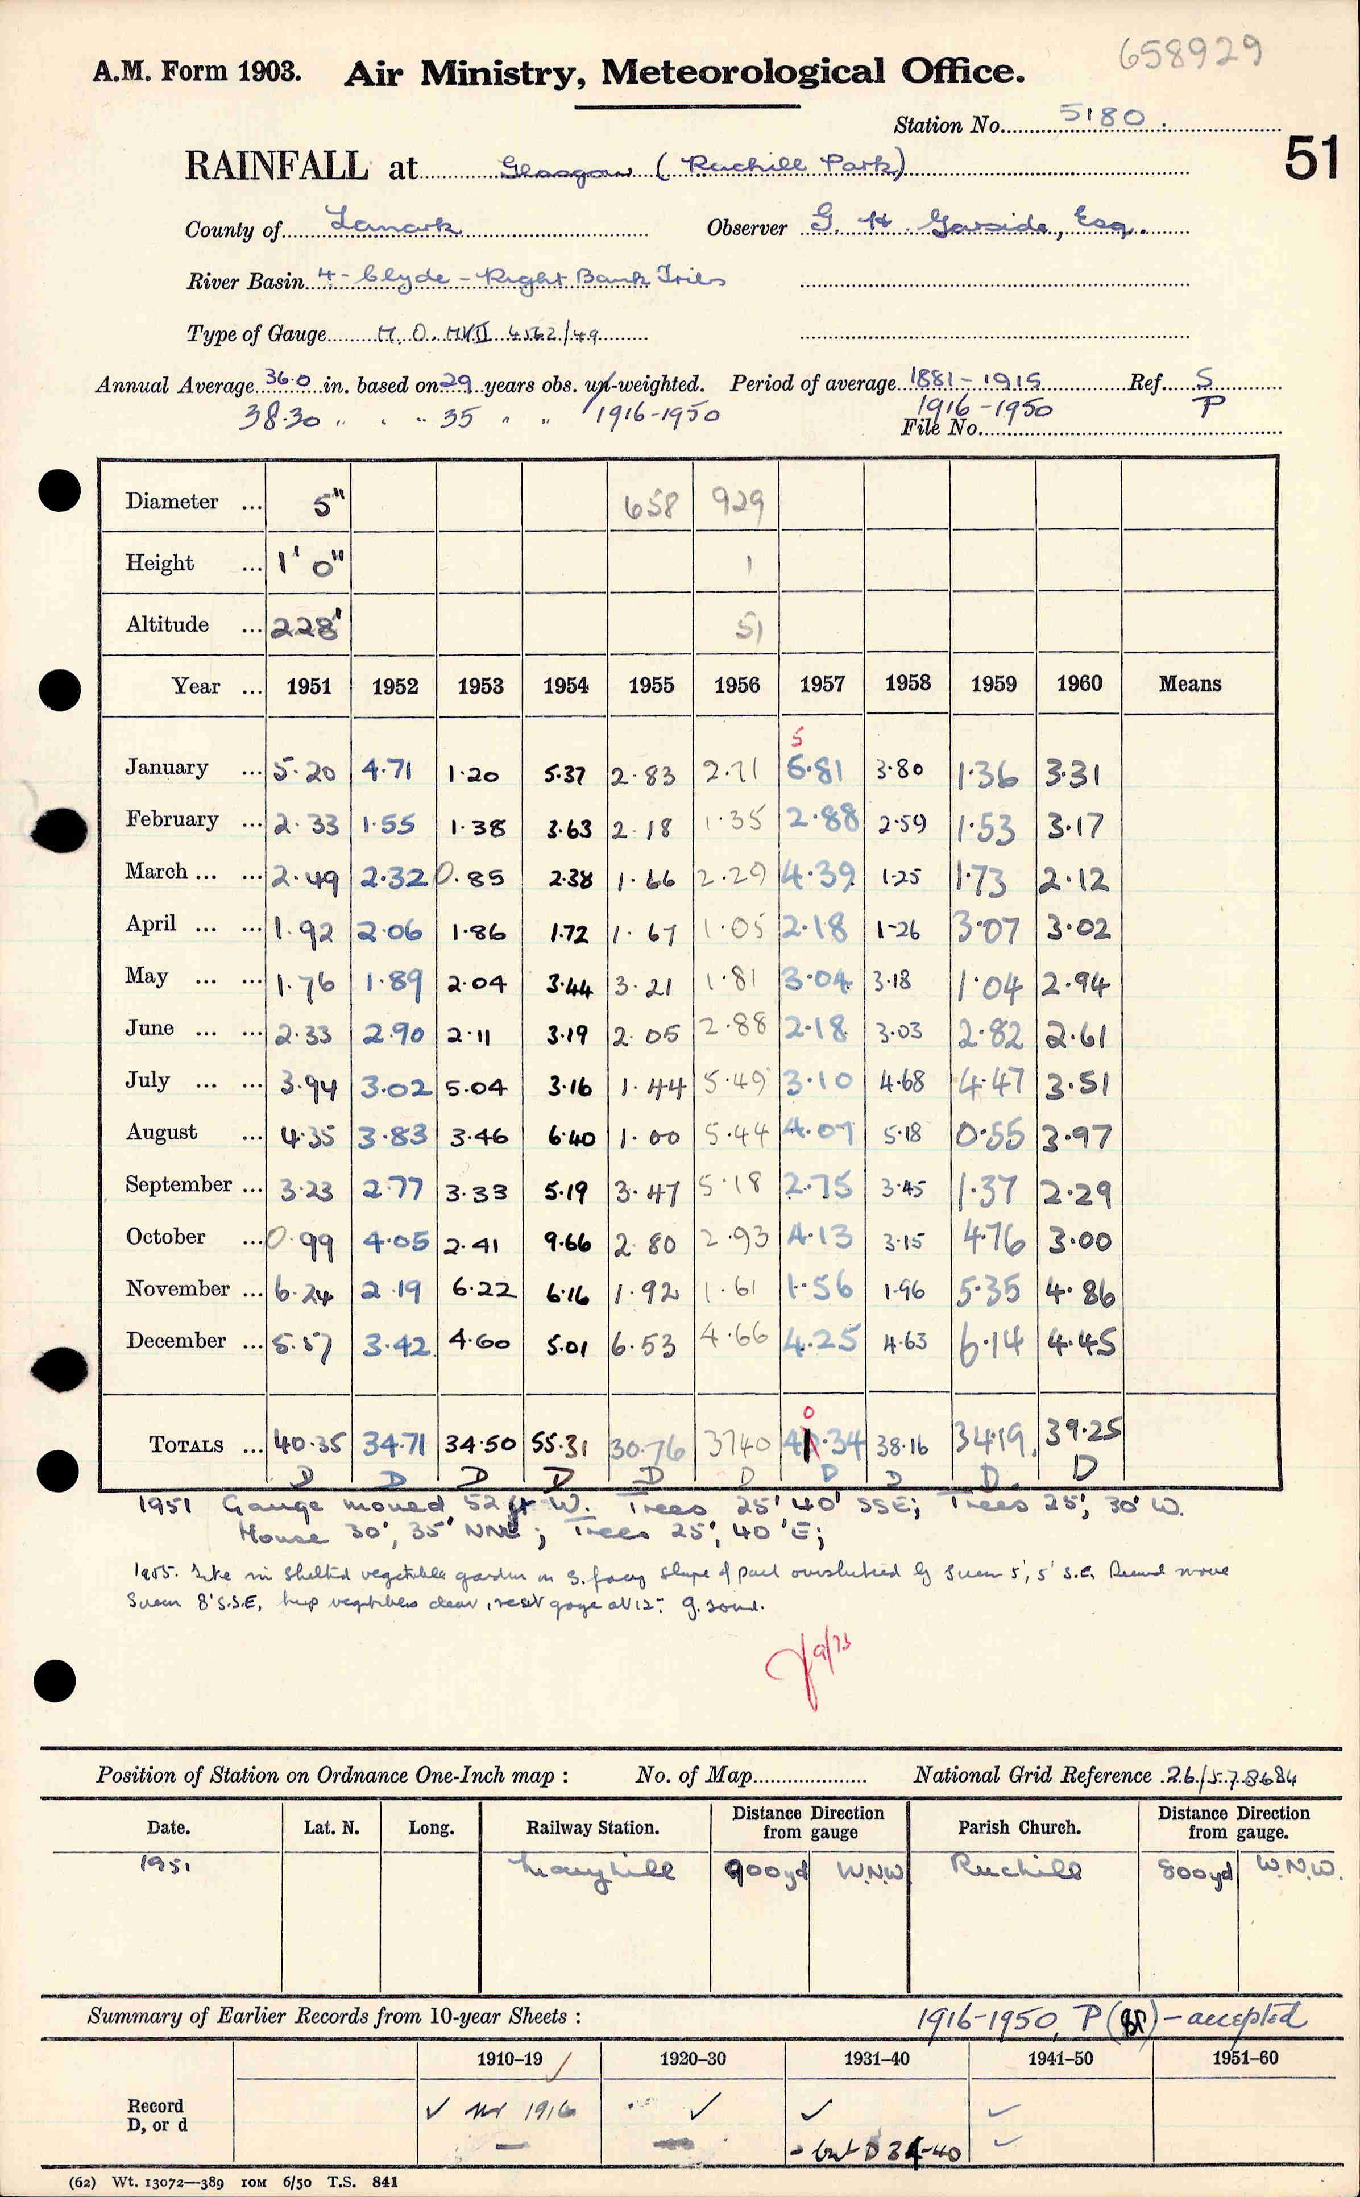 658929
A.M. Form 1903. Air Ministry, Meteorological Office.
Station No. 5180
51
RAINFALL at Glasgow (Ruchill Park)
County of Lanark Observer G. H. Garside, Esq.
River Basin 4 - Clyde - Right Bank Tribs
Type of Gauge M.O. MKII 4562/49
Annual Average 36.0 in. based on 29 years obs. un-weighted. Period of average 1881-1915 Ref. S
38.30 " . " 35 " " 1916-1950 1916-1950 P
File No.
Diameter ... 5" 658 929
Height ... 1' 0" 1
Altitude ... 228' 51
Year ... 1951 1952 1953 1954 1955 1956 1957 1958 1959 1960 Means
5
January ... 5.20 4.71 1.20 5.37 2.83 2.71 6.81 3.80 1.36 3.31
February ... 2.33 1.55 1.38 3.63 2.18 1.35 2.88 2.59 1.53 3.17
March ... ... 2.49 2.32 0.85 2.38 1.66 2.29 4.39 1.25 1.73 2.12
April ... ... 1.92 2.06 1.86 1.72 1.67 1.05 2.18 1.26 3.07 3.02
May ... ... 1.76 1.89 2.04 3.44 3.21 1.81 3.04 3.18 1.04 2.94
June ... ... 2.33 2.90 2.11 3.19 2.05 2.88 2.18 3.03 2.82 2.61
July ... ... 3.94 3.02 5.04 3.16 1.44 5.49 3.10 4.68 4.47 3.51
August ... 4.35 3.83 3.46 6.40 1.00 5.44 4.07 5.18 0.55 3.97
September ... 3.23 2.77 3.33 5.19 3.47 5.18 2.75 3.45 1.37 2.29
October ... 0.99 4.05 2.41 9.66 2.80 2.93 4.13 3.15 4.76 3.00
November ... 6.24 2.19 6.22 6.16 1.92 1.61 1.56 1.96 5.35 4.86
December ... 5.57 3.42 4.60 5.01 6.53 4.66 4.25 4.63 6.14 4.45
0
TOTALS ... 40.35 34.71 34.50 55.31 30.76 37.40 41.34 38.16 34.19 39.25
D D D D D D D D D D
1951 Gauge moved 52 ft W. Trees 25', 40' SSE; Trees 25', 30' W.
House 30', 35' NNE; Trees 25', 40' E;
1955. Site in vegetable garden on S. facing slope of park by 5', 5' S.E.
8' S.S.E, vegetables clear, reset gauge at 12".
9/73
Position of Station on Ordnance One-Inch map : No. of Map National Grid Reference 26/578684
Date. Lat. N. Long. Railway Station. Distance Direction from gauge Parish Church. Distance Direction from gauge.
1951 Maryhill 900yd W.N.W. Ruchill 800yd W.N.W.
Summary of Earlier Records from 10-year Sheets : 1916-1950, P (BP) - accepted
1910–19 1920–30 1931–40 1941–50 1951–60
Record ✓ 1916 ✓ ✓ ✓
D, or d — — - but D 34-40 ✓
(62) Wt. 13072—389 10M 6/50 T.S. 841